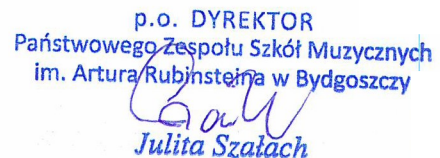 p.o. DYREKTOR
Państwowego Zespołu Szkół Muzycznych
im. Artura Rubinsteina w Bydgoszczy
Julita Szałach